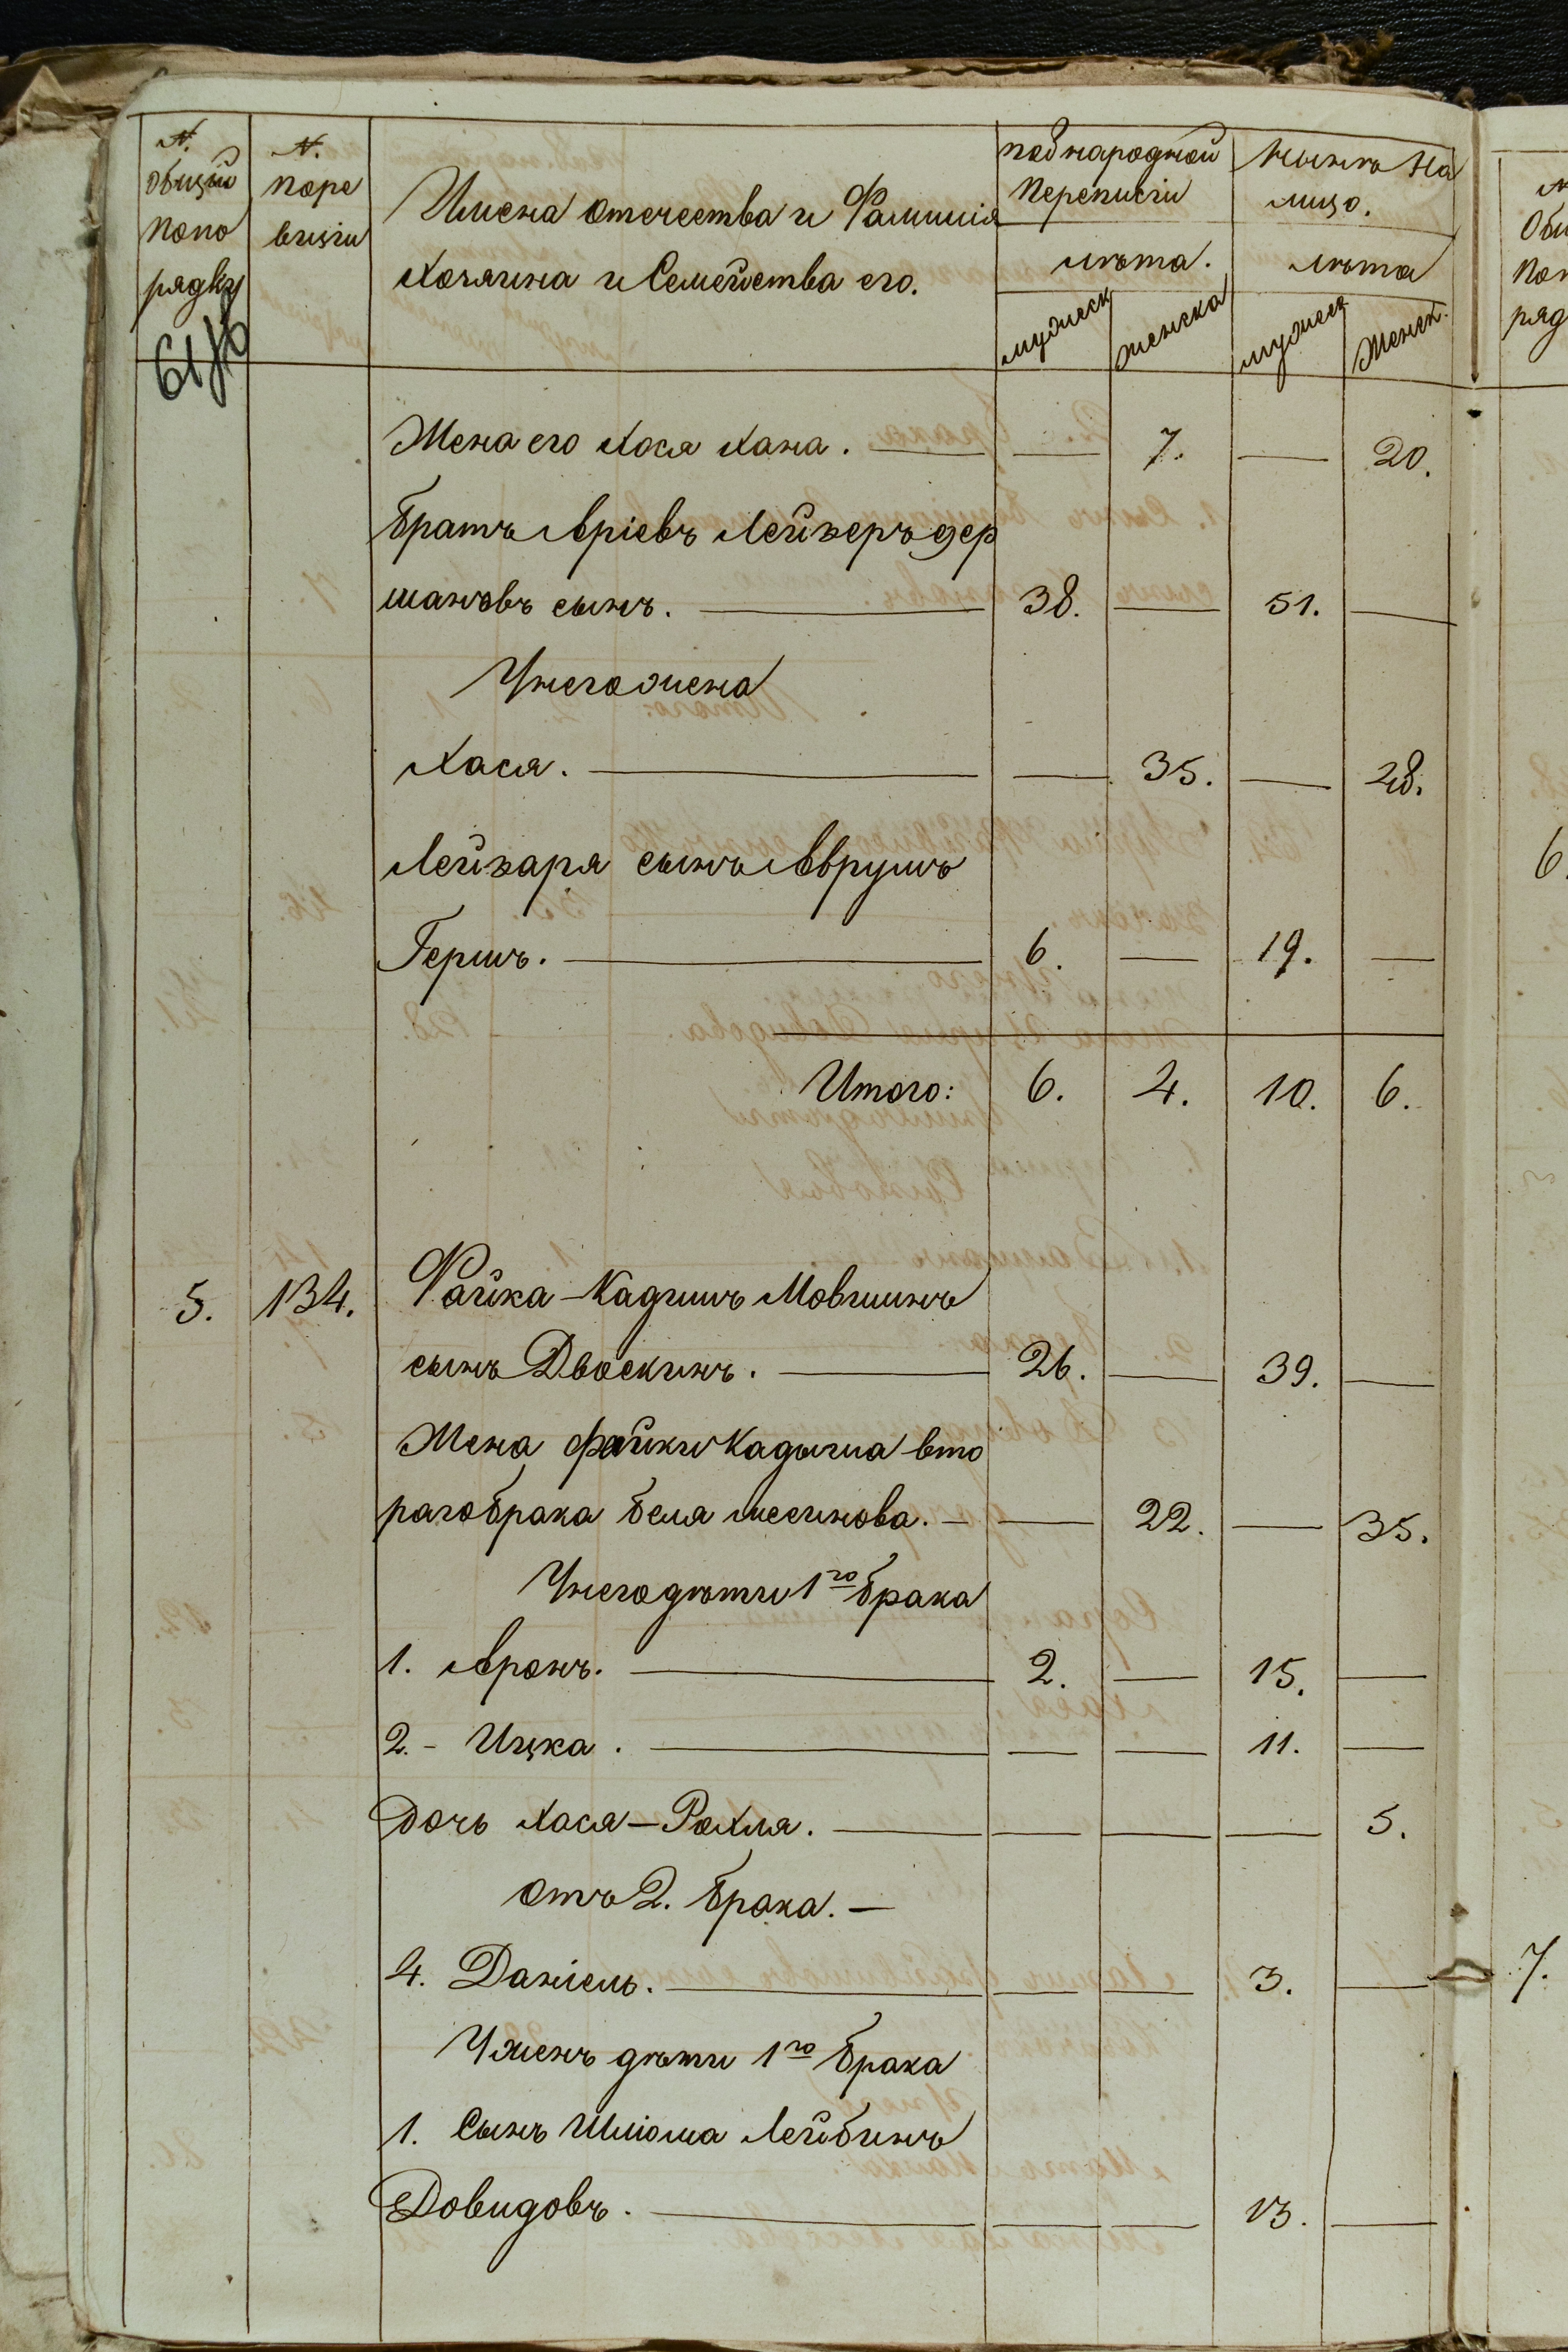 N. общій попо рядку
N. поре визіи
Имена отечества и Фамилія
Хозяина и Семейства его.
под народной переписи
лѣта.
мужеск
женска
Нынѣ На лицо.
лѣта
мужеск
Женск.
Жена его Хася Хана. — — 7. — 20.
братъ Аріевъ Лейзеръ гер
шановъ сынъ. — 38. — 51. —
У него жена
Хася. — — 35. — 48.
Лейзара сынъ Аврумъ
Гершъ. — 6. — 19. —
Итого: 6. 4. 10. 6.
5. 134. Файка-Кадишъ Мовшинъ
сынъ Двоскинъ. — 26. — 39. —
Жена файки Кадыша вто
рагобрака беля месинова. — — 22. — 35.
У него дѣти 1го брака
1. Аронъ. — 2. — 15. —
2. - Ицка. — — — 11. —
Дочь Хася-Рохля. — — — — 5.
отъ 2. брака. —
4. Даніель. — — — 3. —
У женъ дѣти 1го брака
1. Сынъ Шліома Лейбинъ
Довидовъ. — — — 13. —
6.
7.